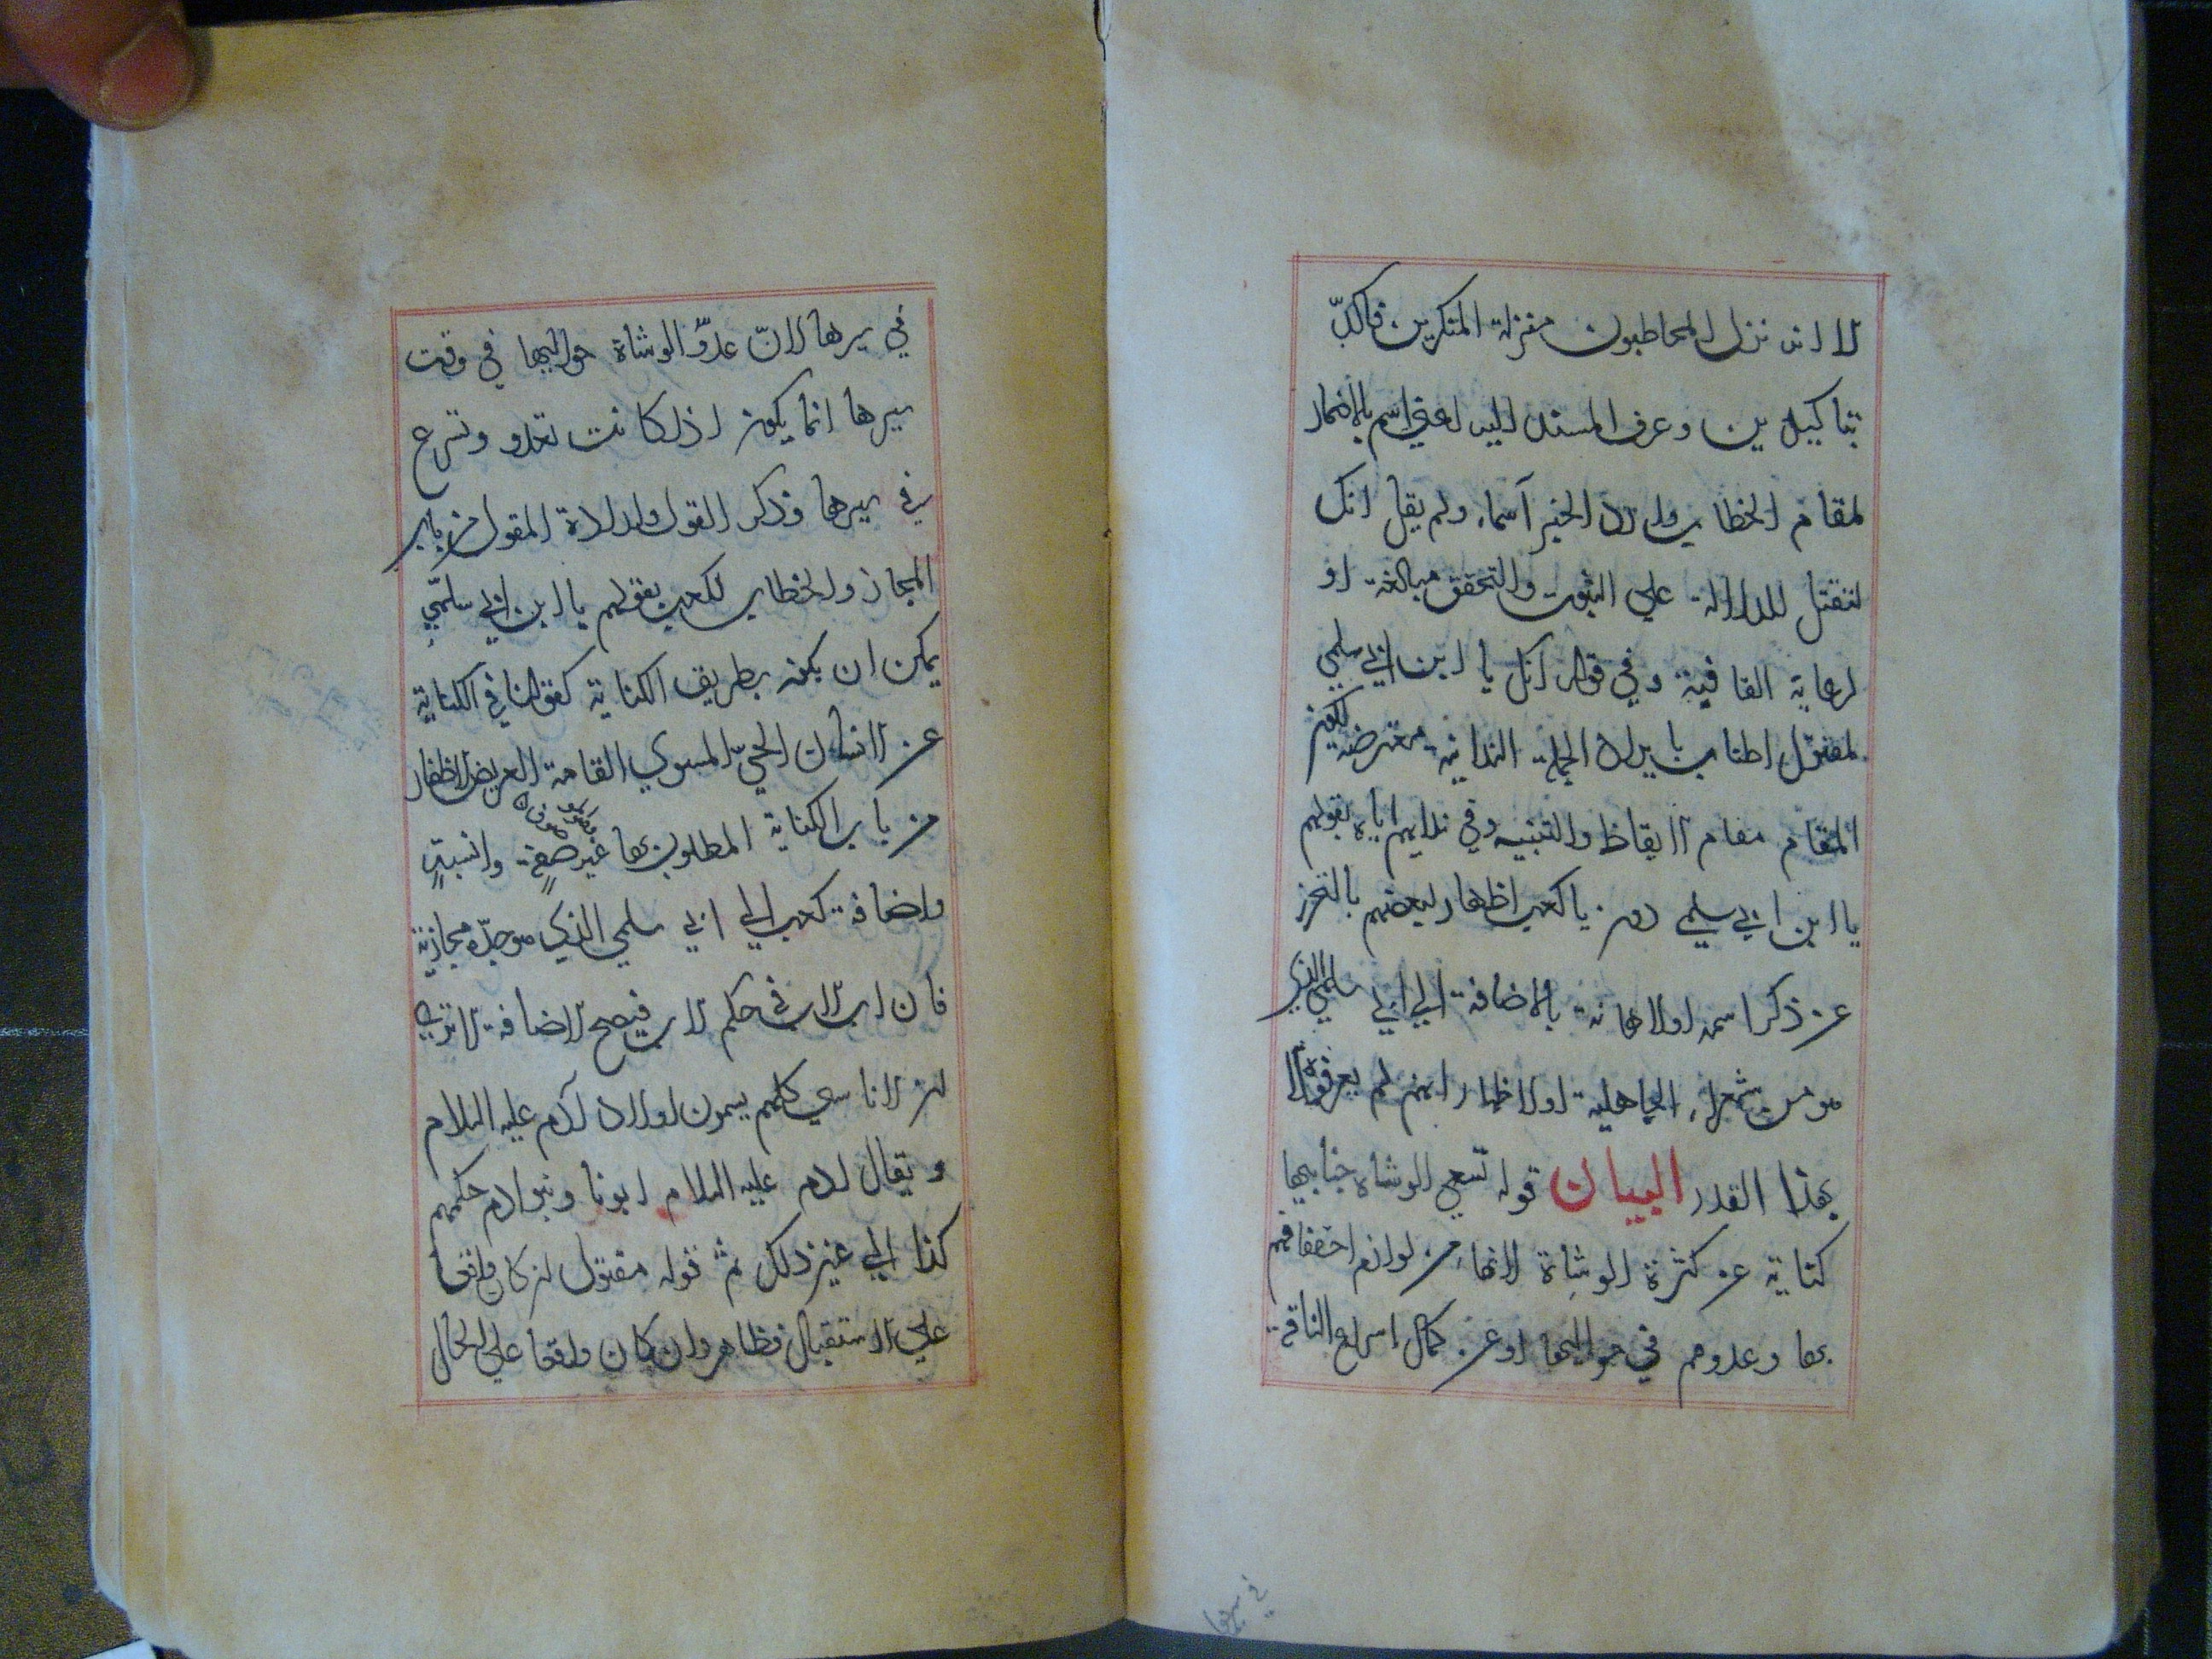 لا انه نزل المخاطبون منزلة المنكرين فاكد
بتاكيدين وعرف المسند اليه اعني اسم بالاضمار
لمقام الخطاب وايراد الخبر اسما ولم يقل انك
لتقتل للدلالة على الثبوت والتحقق مبالغة او
لرعاية القافية وفي قوله انك يا ابن ابي سلمي
لمقتول اطناب بايراد الجملة الندائية معترضة لكون
المقام مقام الايقاظ والتنبيه وفي ندايهم اياه بقولهم
يا ابن ابي سلمي دون يا كعب اظهار لبعضهم بالتحرز
عن ذكر اسمه او لاهانة بالاضافة الي ابي سلمي الذي
هو من شعراء الجاهلية او لاظهار انهم لم يعرفوه الا
بهذا القدر البيان قوله تسعي الوشاة جنابيها
كناية عن كثرة الوشاة لانها من لوازم احتفافهم
بها وعدوهم في حواليها او عن كمال اسراع الناقة
في سيرها
في سيرها لان عدو الوشاة حواليها في وقت
سيرها انما يكون اذا كانت تعدو وتسرع
في سيرها وذكر القول وارادة المقول من باب
المجاز والخطاب لكعب بقولهم يا ابن ابي سلمي
يمكن ان يكون بطريق الكناية كقولنا في الكناية
عن الانسان الحي المستوي القامة العريض الاظفار
من باب الكناية المطلوب بها غير صفة ولا نسبة
واضافة كعب الي ابي سلمي الذي هو جده مجازية
فان اب الاب في حكم الاب فيصح الاضافة الا تري
ان الاناسي كلهم يسمون اولاد آدم عليه السلام
ويقال لادم عليه السلام ابونا وبنو ادم حكمهم
كذا الي غير ذلك ثم قوله مقتول ان كان واقعا
علي الاستقبال فظاهر وان كان واقعا علي الحال